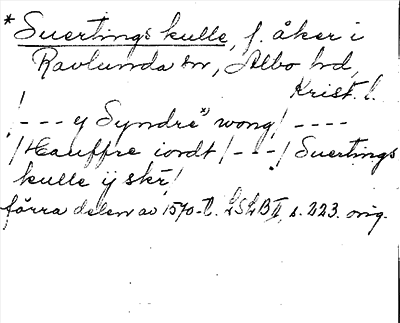 * Suertings kulle, f. åker i
Ravlunda sn, Albo hd,
Krist. l.
/--- y Syndre *) wong/ ----
/Hauffre iordt/---/ Suertings
kulle ij skr̄/
förra delen av 1570-t. LSLB II, s. 223. orig.